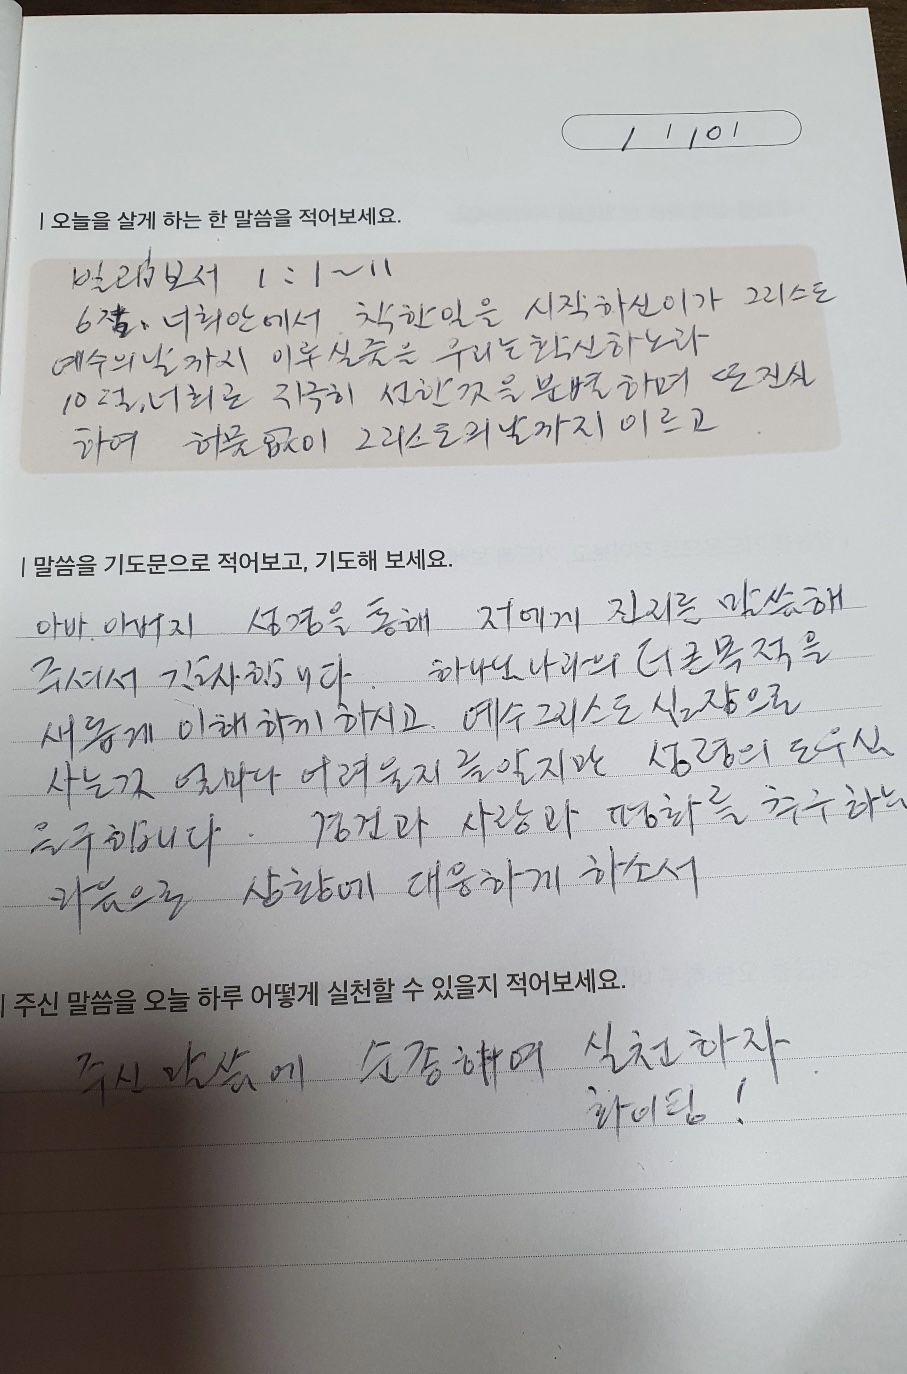 1 1 101
| 오늘을 살게 하는 한 말씀을 적어보세요.
빌립보서 1:1~11
6절, 너희안에서 착한일을 시작하신이가 그리스도
예수의날까지 이루실줄을 우리는확신하노라
10절, 너희로 지극히 선한것을분별하며 또진실
하여 허물없이 그리스도의날까지이르고
| 말씀을 기도문으로 적어보고, 기도해 보세요.
아바.아버지 성경을통해 저에게 진리를 말씀해
주셔서 감사합니다. 하나님나라의 더큰목적을
새롭게 이해하게하시고. 예수그리스도심장으로
사는것 얼마나 어려울지를알지만 성령의 도우심
을구합니다. 경건과 사랑과 평화를 추구하는
마음으로 상황에 대응하게 하소서
| 주신 말씀을 오늘 하루 어떻게 실천할 수 있을지 적어보세요.
주신말씀에 순종하여 실천하자.
화이팅!